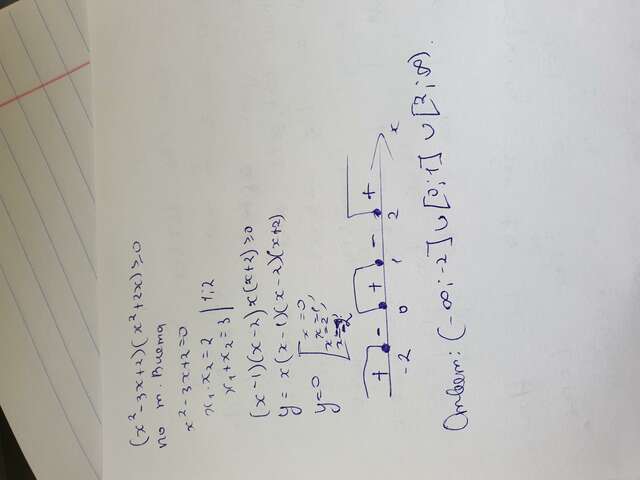 (x²-3x+2)(x²+2x)≥0
по т. Виета
x²-3x+2=0
x₁·x₂=2 | 1; 2
x₁+x₂=3
(x-1)(x-2)x(x+2)≥0
y=x(x-1)(x-2)(x+2)
y=0 [ x=0
x=1,
x=2,
x=-2
+ - + - +
-2 0 1 2 x
Ответ: (-∞; -2]∪[0; 1]∪[2; ∞).